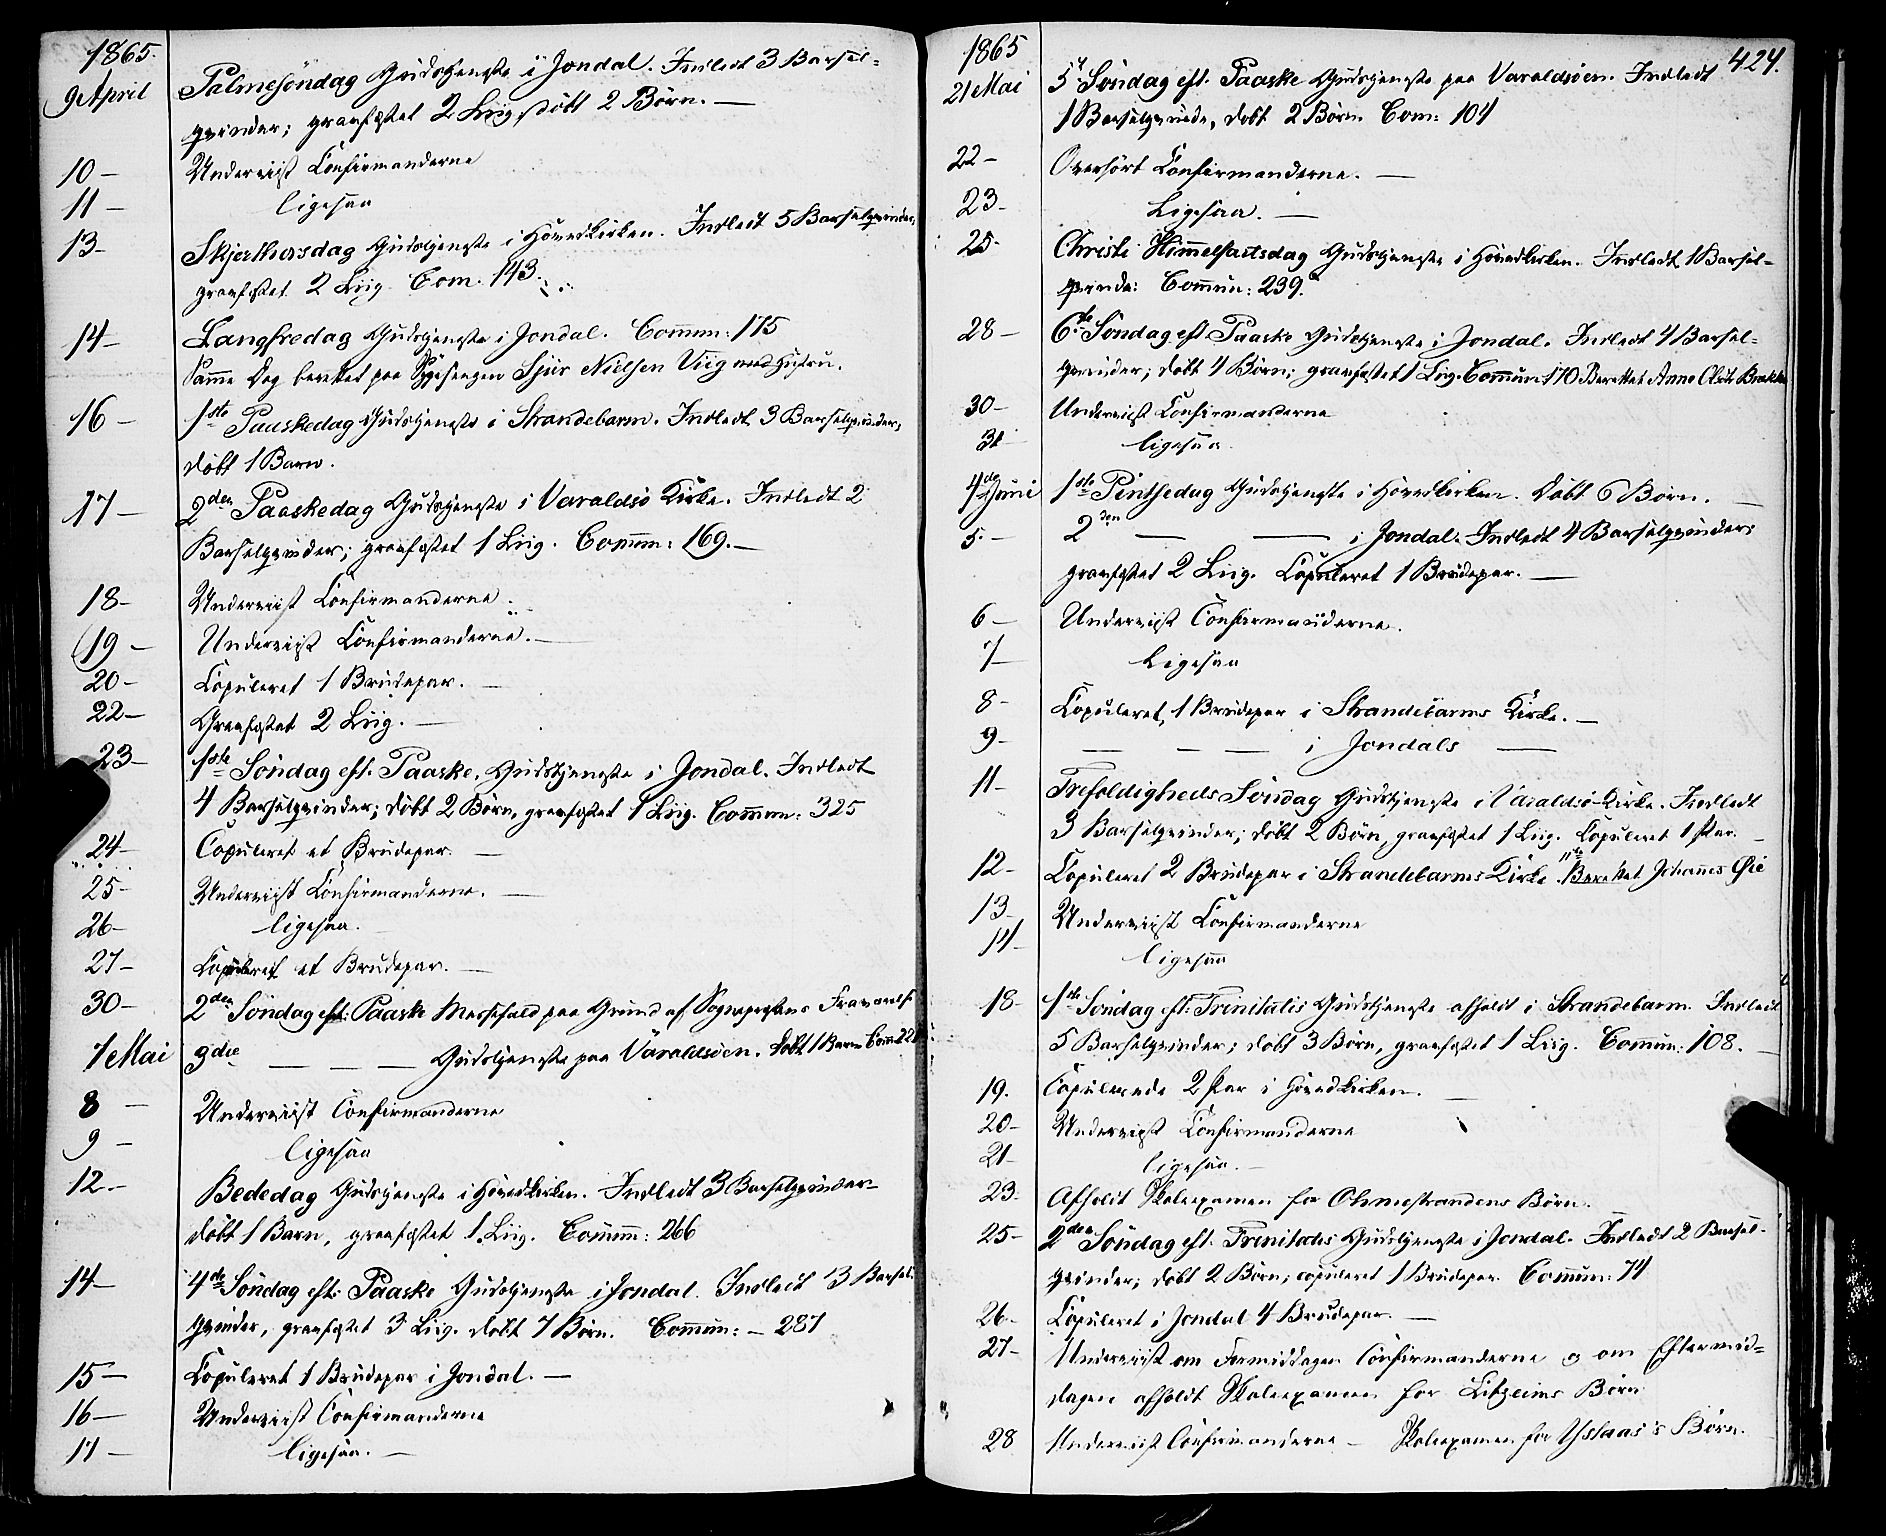 1865.
9 April Palmesöndag Gudstjeneste i Jondal. Indledt 3 Barsel-
qvinder; graafæstet 2 Liig, döbt 2 Börn. —
10 — Underviist Confirmanderne
11 — ligesaa
13 — Skjerthorsdag Gudstjeneste i Hovedkirken. Indledt 5 Barselqvinder,
graafæstet 2 Liig. Com. 143.
14 — Langfredag Gudstjeneste i Jondal. Commun: 175
Samme Dag berettet paa Sygesengen Sjur Nielsen Viig med Hustru.
16 — 1ste Paaskedag Gudstjeneste i Strandebarm. Indledt 3 Barselqvinder,
döbt 1 Barn.
17 — 2den Paaskedag Gudstjeneste i Varaldsö Kirke. Indledt 2
Barselqvinder; graafæstet 1 Liig. Commun: 169. —
18 — Underviist Confirmanderne.
19 — Underviist Confirmanderne. —
20 — Copuleret 1 Brudepar. —
22 — Graafæstet 2 Liig. —
23 — 1ste Söndag eft. Paaske, Gudstjeneste i Jondal. Indledt
4 Barselqvinder; döbt 2 Börn, graafæstet 1 Liig. Commun: 325
24 — Copuleret et Brudepar. —
25 — Underviist Confirmanderne. —
26 — ligesaa.
27 — Copuleret et Brudepar. —
30 — 2den Söndag eft: Paaske Messefald paa Grund af Sognepræstens Fraværelse
7 Mai 3die — — — Gudstjeneste paa Varaldsöen. döbt 1 Barn Com:
8 — Underviist Confirmanderne
9 — ligesaa
12 — Bededag Gudstjeneste i Hovedkirken. Indledt 3 Barselqvinder
döbt 1 Barn, graafæstet 1 Liig. Commun: 266
14 — 4de Söndag eft: Paaske Gudstjeneste i Jondal. Indledt 3 Barsel-
qvinder, graafæstet 3 Liig. döbt 7 Börn. Commun: — 287
15 — Copuleret 1 Brudepar i Jondal. —
16 — Underviist Confirmanderne
17 — ligesaa. —
424.
1865
21 Mai 5te Söndag eft. Paaske Gudstjeneste paa Varaldsöen. Indledt
1 Barselqvinde, döbt 2 Börn Com: 104
22 — Overhört Confirmanderne. —
23 — Ligesaa. —
25 — Christi Himmelfartsdag Gudstjeneste i Hovedkirken. Indledt 1 Barsel-
qvinde: Commun: 239.
28 — 6te Söndag eft Paaske Gudstjeneste i Jondal. Indledt 4 Barsel-
qvinder; döbt 4 Börn; graafæstet 1 Liig. Commun 170 Berettet Anne
30 — Underviist Confirmanderne
31 — ligesaa.
4de Juni 1ste Pintsedag Gudstjeneste i Hovedkirken. Döbt 6 Börn. —
5. — 2den — — i Jondal. Indledt 4 Barselqvinder;
graafæstet 2 Liig. Copuleret 1 Brudepar. —
6 — Underviist Confirmanderne.
7 — Ligesaa
8 — Copuleret, 1 Brudepar i Strandebarms Kirke. —
9 — — — — i Jondals —
11 — Trefoldigheds Söndag Gudstjeneste i Varaldsö-Kirke. Indledt
3 Barselqvinder; döbt 2 Börn, graafæstet 1 Liig. Copuleret 1 Par. —
12 — Copuleret 2 Brudepar i Strandebarms Kirke. Berettet Johannes Øie
13 — Underviist Confirmanderne
14 — ligesaa
18 — 1ste Söndag eft: Trinitatis Gudstjeneste afholdt i Strandebarm. Indledt
5 Barselqvinder; döbt 3 Börn, graafæstet 1 Liig. Commun: 108. —
19. Copulerede 2 Par i Hovedkirken. —
20 — Underviist Confirmanderne
21 — ligesaa. —
23 — Afholdt Skoleexamen for Ohmestrandens Börn.
25 — 2den Söndag eft. Trinitatis Gudstjeneste i Jondal. Indledt 2 Barsel-
qvinder; döbt 2 Börn; copuleret 1 Brudepar. Commun: 74
26 — Copuleret i Jondal 4 Brudepar. —
27 — Underviist om Formiddagen Confirmanderne og om Eftermid-
dagen afholdt Skoleexamen for Börn
28 Underviist Confirmanderne — Skoleexamen for Börn.